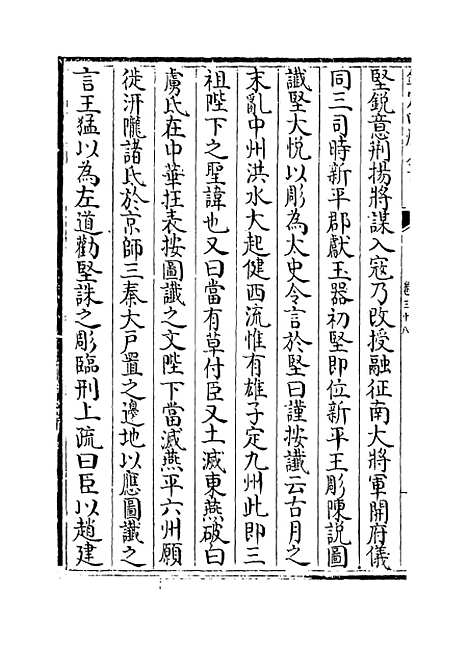 卷三十八
堅鋭意荆揚將謀入寇乃改授融征南大將軍開府儀
同三司時新平郡獻玉器初堅即位新平王彫陳説圖
讖堅大悦以彫為太史令言於堅曰謹按讖云古月之
末亂中州洪水大起健西流惟有雄子定九州此即三
祖陛下之聖諱也又曰當有草付臣又土滅東燕破白
虜氏在中華在表按圖讖之文陛下當滅燕平六州願
徙汧隴諸氏於京師三秦大户置之邊地以應圖讖之
言王猛以為左道勸堅誅之彫臨刑上疏曰臣以趙建